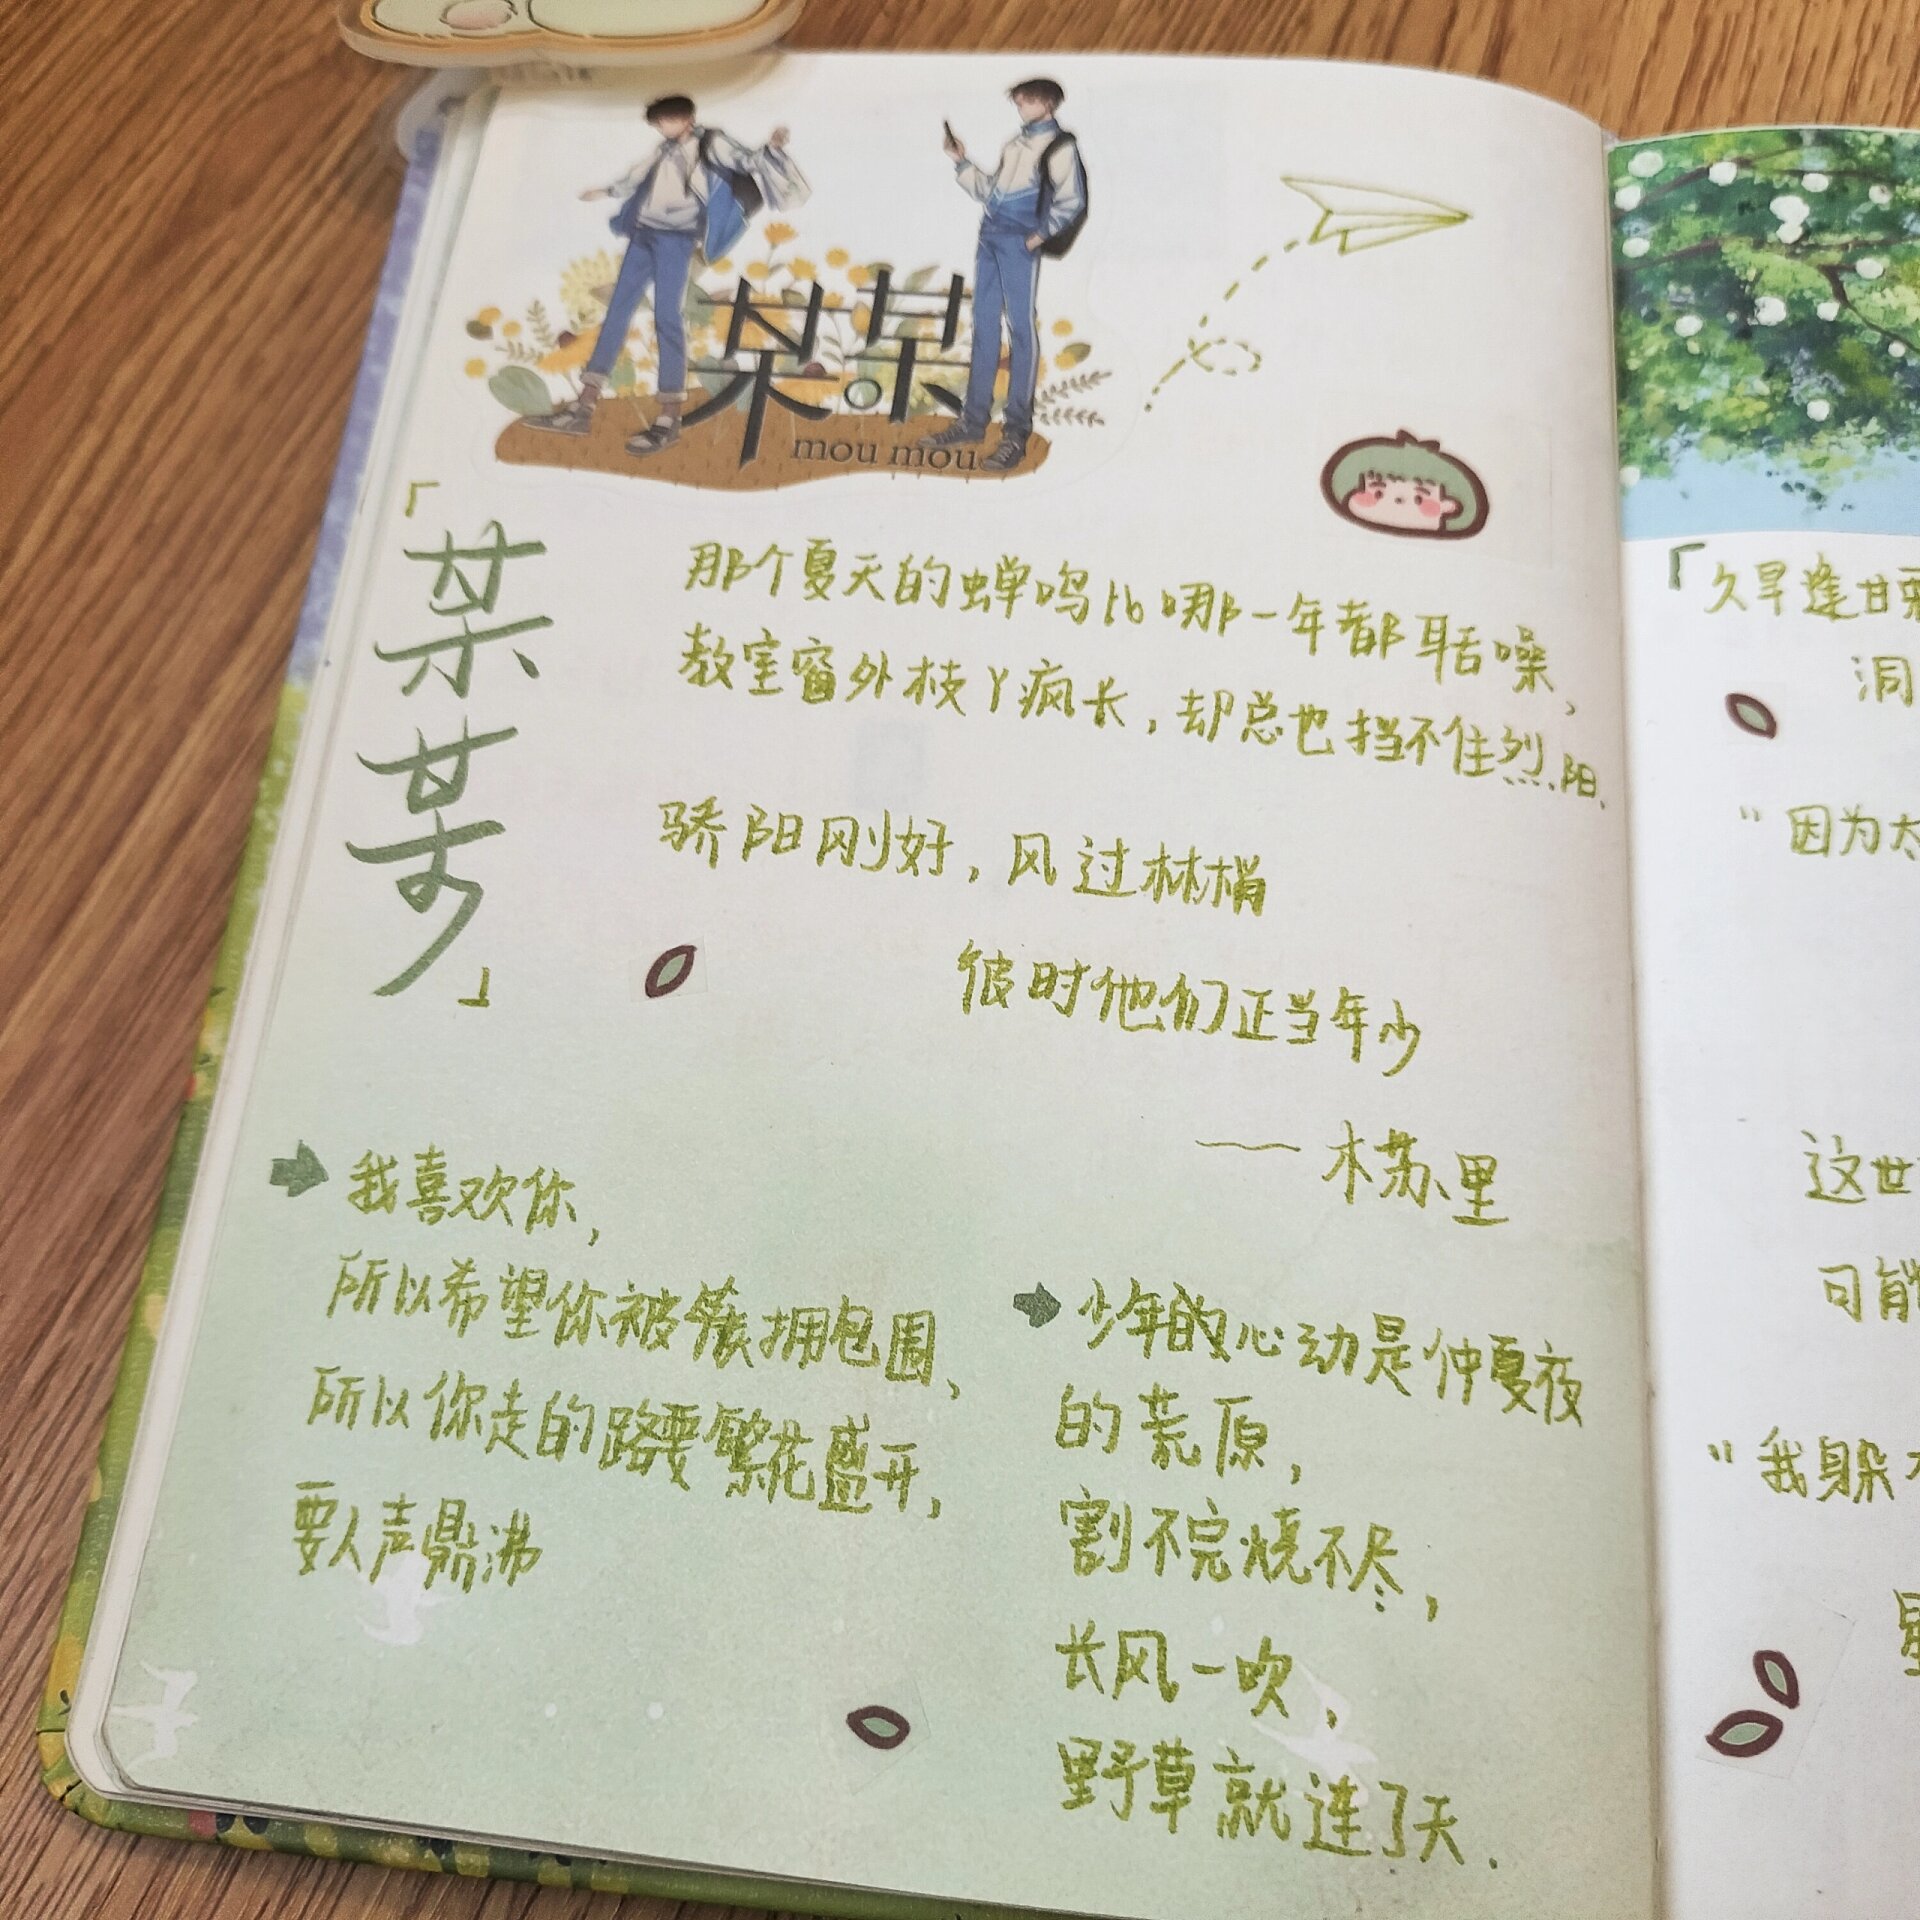 某某
mou mou
「某某」
那个夏天的蝉鸣比哪一年都聒噪,
教室窗外枝丫疯长,却总也挡不住烈阳.
骄阳刚好,风过林梢
彼时他们正当年少
——木苏里
我喜欢你,
所以希望你被簇拥包围,
所以你走的路要繁花盛开,
要人声鼎沸
少年的心动是仲夏夜
的荒原,
割不完烧不尽,
长风一吹,
野草就连了天.
「久旱逢甘
洞
"因为太
这世
可能
"我躲